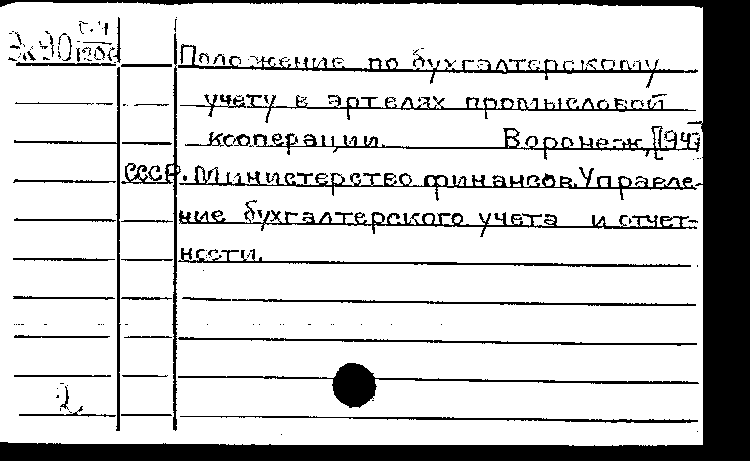 Эк90 С.Ч
1206
Положение по бухгалтерскому
учету в артелях промысловой
кооперации. Воронеж, [1947
СССР. Министерство финансов. Управле-
ние бухгалтерского учета и отчет-
ности.
2